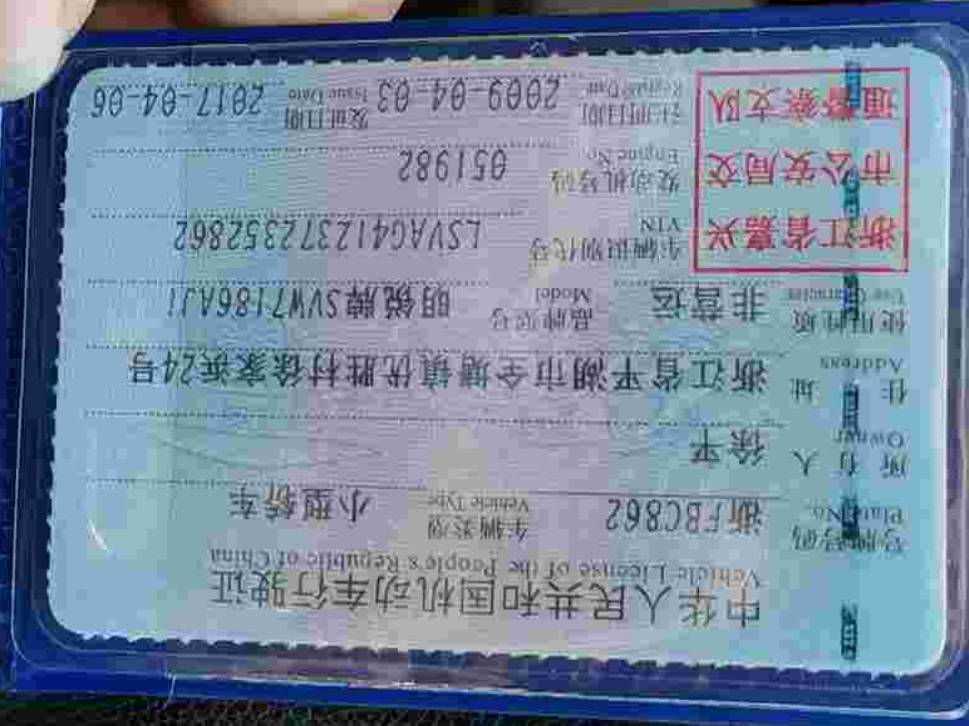 中华人民共和国机动车行驶证
Vehicle License of the People's Republic of China
号牌号码 Plate No. 浙FBC862 车辆类型 Vehicle Type 小型轿车
所有人 Owner 徐平
住址 Address 浙江省平湖市全塘镇优胜村徐家浜24号
使用性质 Use Character 非营运 品牌型号 Model 明锐牌SVW7186AJi
浙江省嘉兴
市公安局交
通警察支队
车辆识别代号 VIN LSVAG412372352862
发动机号码 Engine No. 051982
注册日期 Register Date 2009-04-03 发证日期 Issue Date 2017-04-06